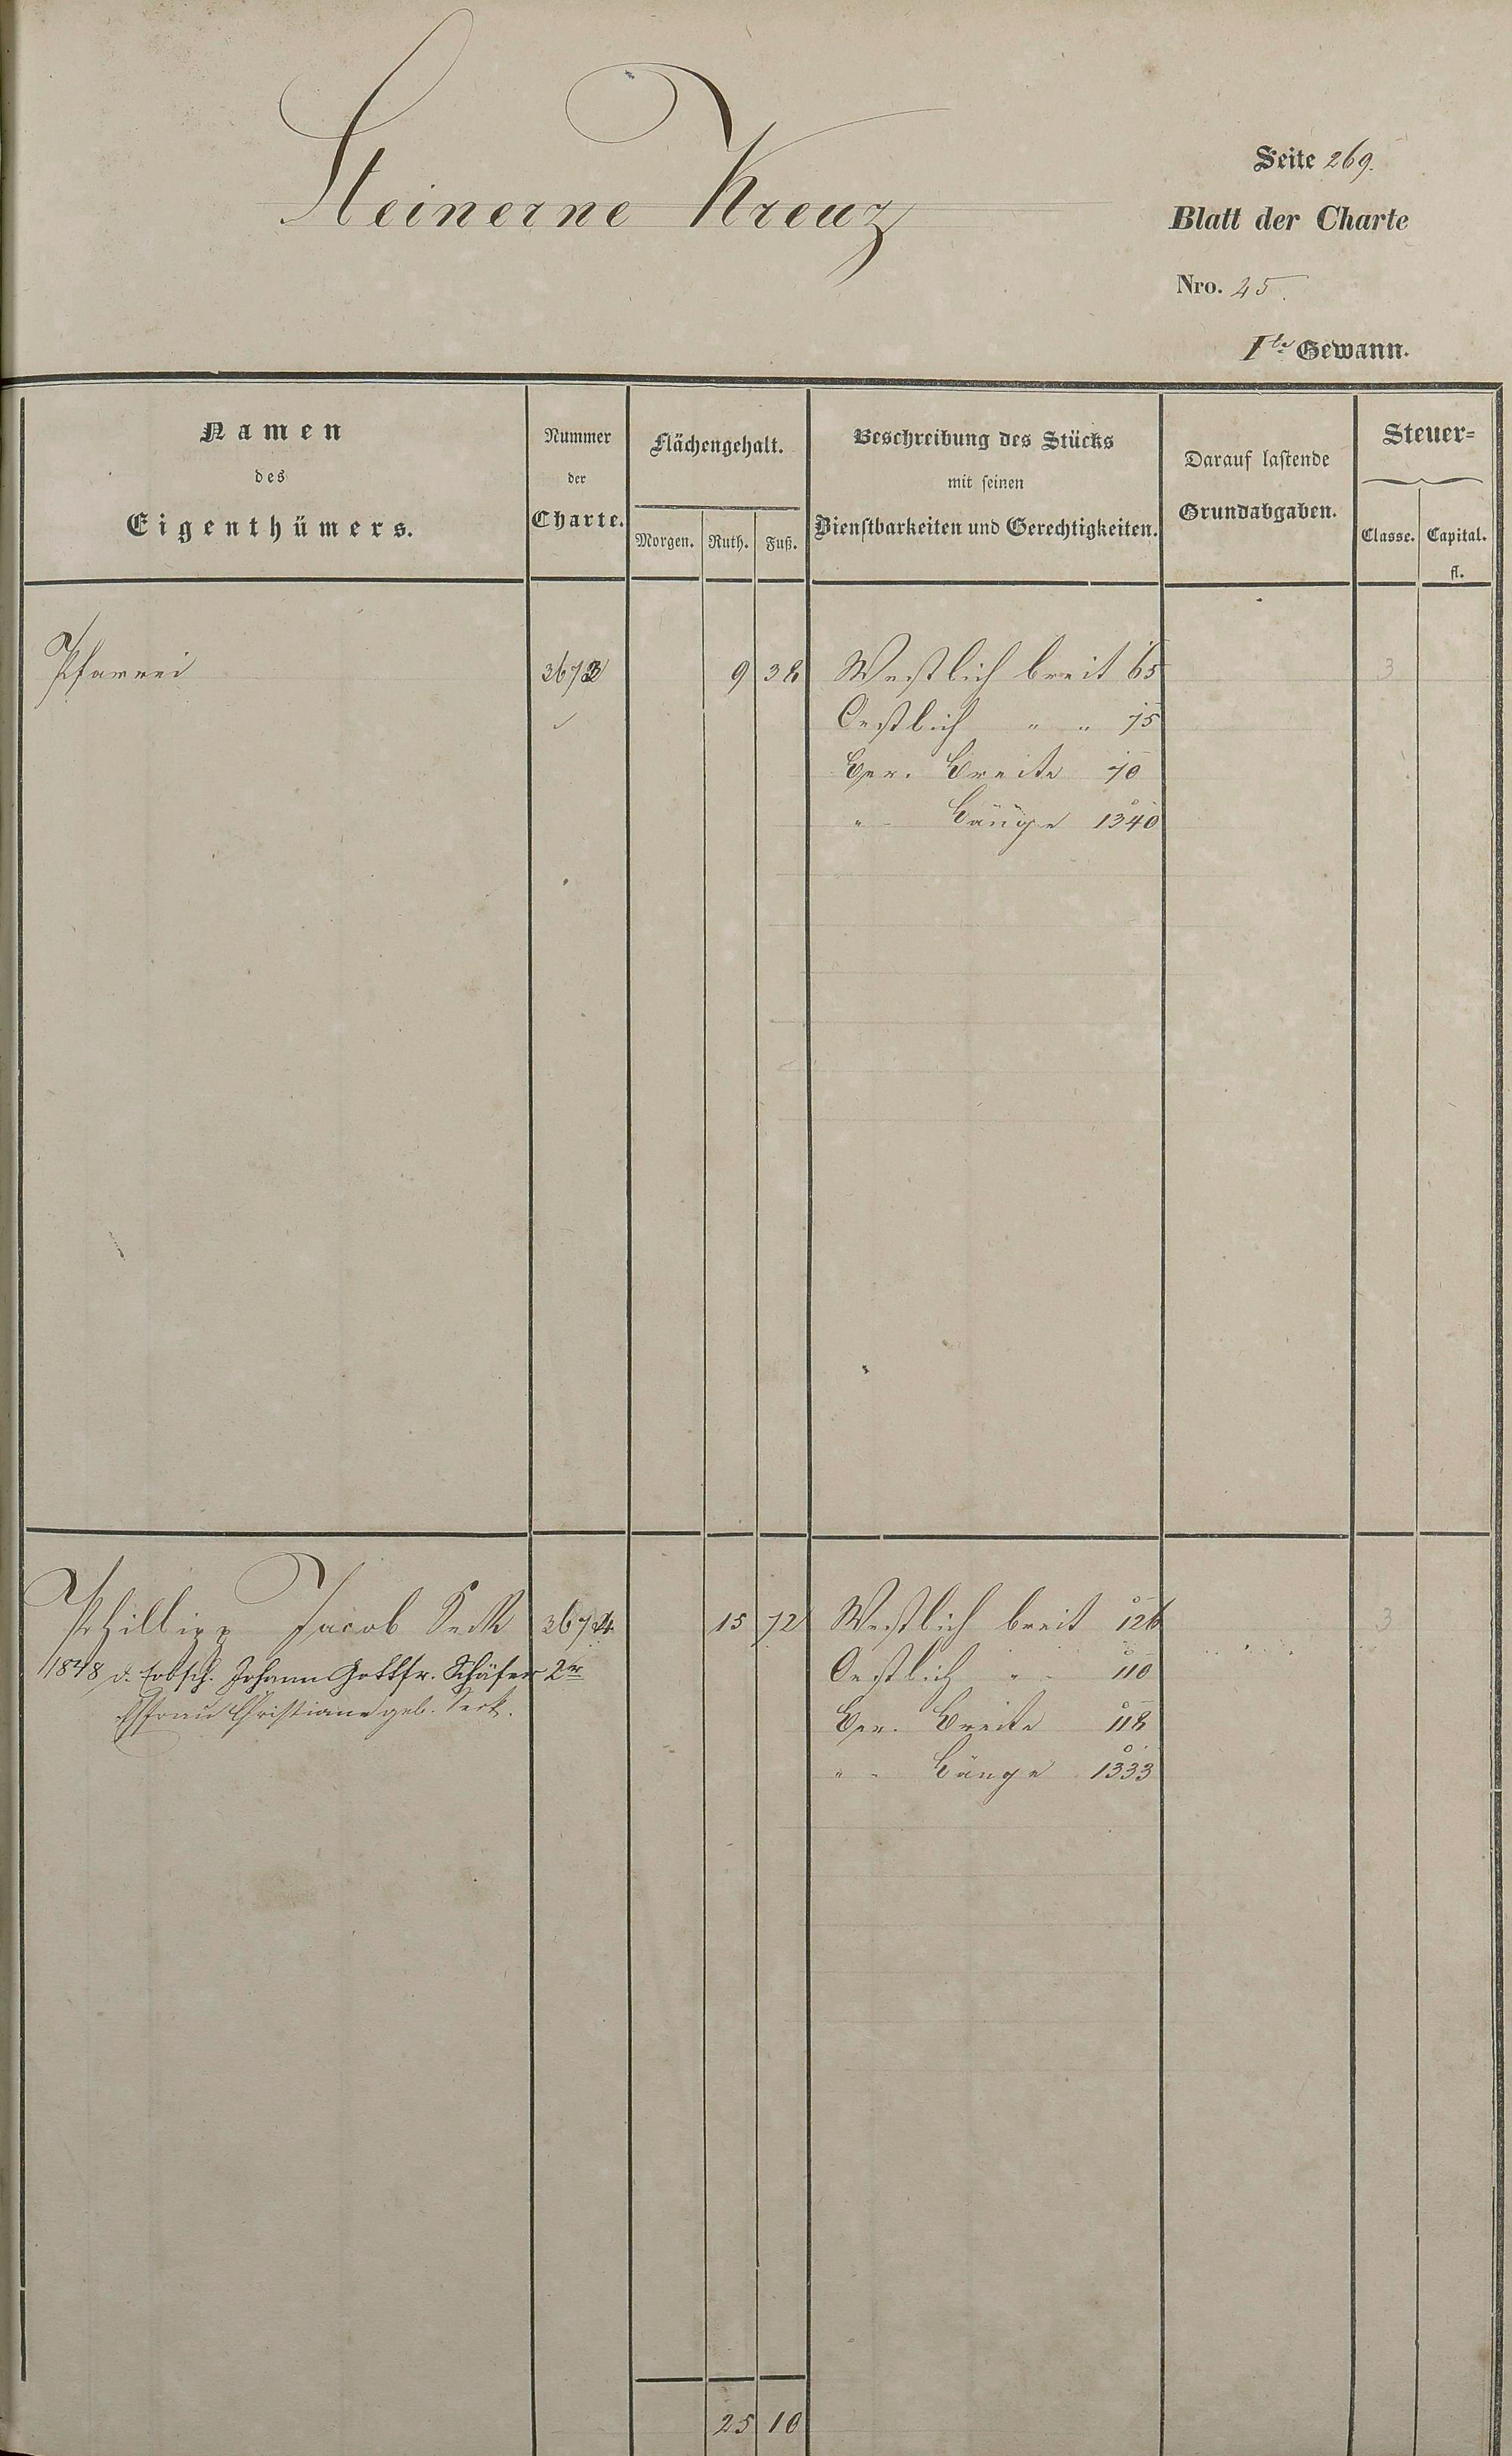 Steinerne Kreuz
Seite 269.
Blatt der Charte
Nro. 45.
Ite Gewann.
Namen
des
Eigenthümers.
Nummer
der
Charte.
Flächengehalt.
Morgen. Ruth. Fuß.
Beschreibung des Stücks
mit seinen
Dienstbarkeiten und Gerechtigkeiten.
Darauf lastende
Grundabgaben.
Steuer-
Classe. Capital.
fl.
Pfarrei 3673 9 38 Westlich breit 65 3
Oestlich " " 75
Ger. Breite 70
" Länge 1340
Philipp Jacob Seck 3674 15 72 Westlich breit 126 3
1848 d. Erbsch. Johann Gottfr. Schäfer 2r Oestlich " " 110
Ehfrau Christiane geb. Seck. Ger. Breite 118
" " Länge 1333
25 10